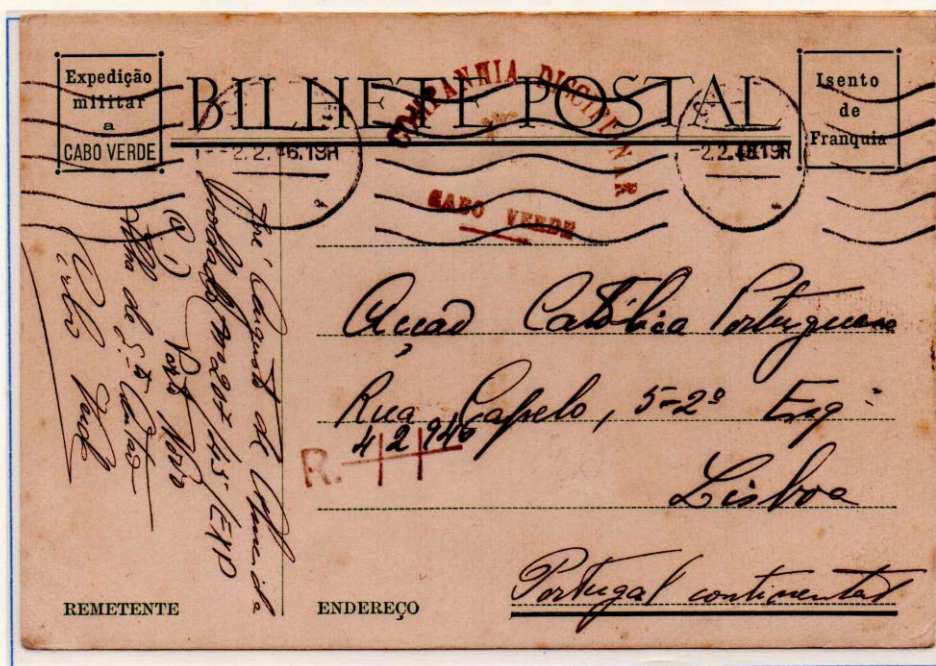 Expedição
militar
a
CABO VERDE
BILHETE POSTAL
Isento
de
Franquia
COMPANHIA DISCIPLINAR
CABO VERDE
-2.2.46.19H
-2.2.46.19H
José Augusto de
Soldado nº 297/45/EXP
Porto Novo
Ilha de Stº Antão
Cabo Verde
Acção Católica Portuguesa
Rua Capelo, 5-2º Esq.
R. 4 2 946
Lisboa
Portugal continental
REMETENTE
ENDEREÇO